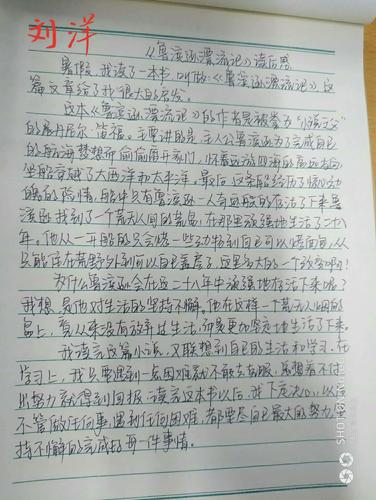 刘洋
《鲁滨逊漂流记》读后感
暑假，我读了一本书，叫做《鲁滨逊漂流记》，这
篇文章给了我很大的启发。
这本《鲁滨逊漂流记》的作者是被誉为“小说之父”
的展丹尼尔·笛福。主要讲的是，主人公鲁滨逊为了完成自己
的航海梦想而偷偷离开家门，怀着远游四海的高远志向，
坐船穿越了大西洋和太平洋。最后，这条船经历了惊心动
魄的险情，船中只有鲁滨逊一人奇迹般的存活了下来。鲁
滨逊找到了一个荒无人间的荒岛，在那里顽强地生活了二十八
年。他从一开始的只会烤一些动物到自己可以烤面包，从
只能住在荒野外到可以自己盖房子，这是多大的一个改变啊！
为什么鲁滨逊会在这二十八年中顽强地存活下来呢？
我想，是他对生活的坚持不懈。他在这样一个荒无人烟的
岛上，看从来没有放弃过生活，而是更加坚定地生活了下来。
我读完这篇小说，又联想到自己的生活和学习。在
学习上，我只要遇到一点困难就不敢去克服，总想着不付
出努力就得到回报。读完这本书以后，我下定决心，以后
不管做任何事，遇到任何困难，都要尽自己最大的努力，坚
持不懈的完成好每一件事情。
SHOT ON